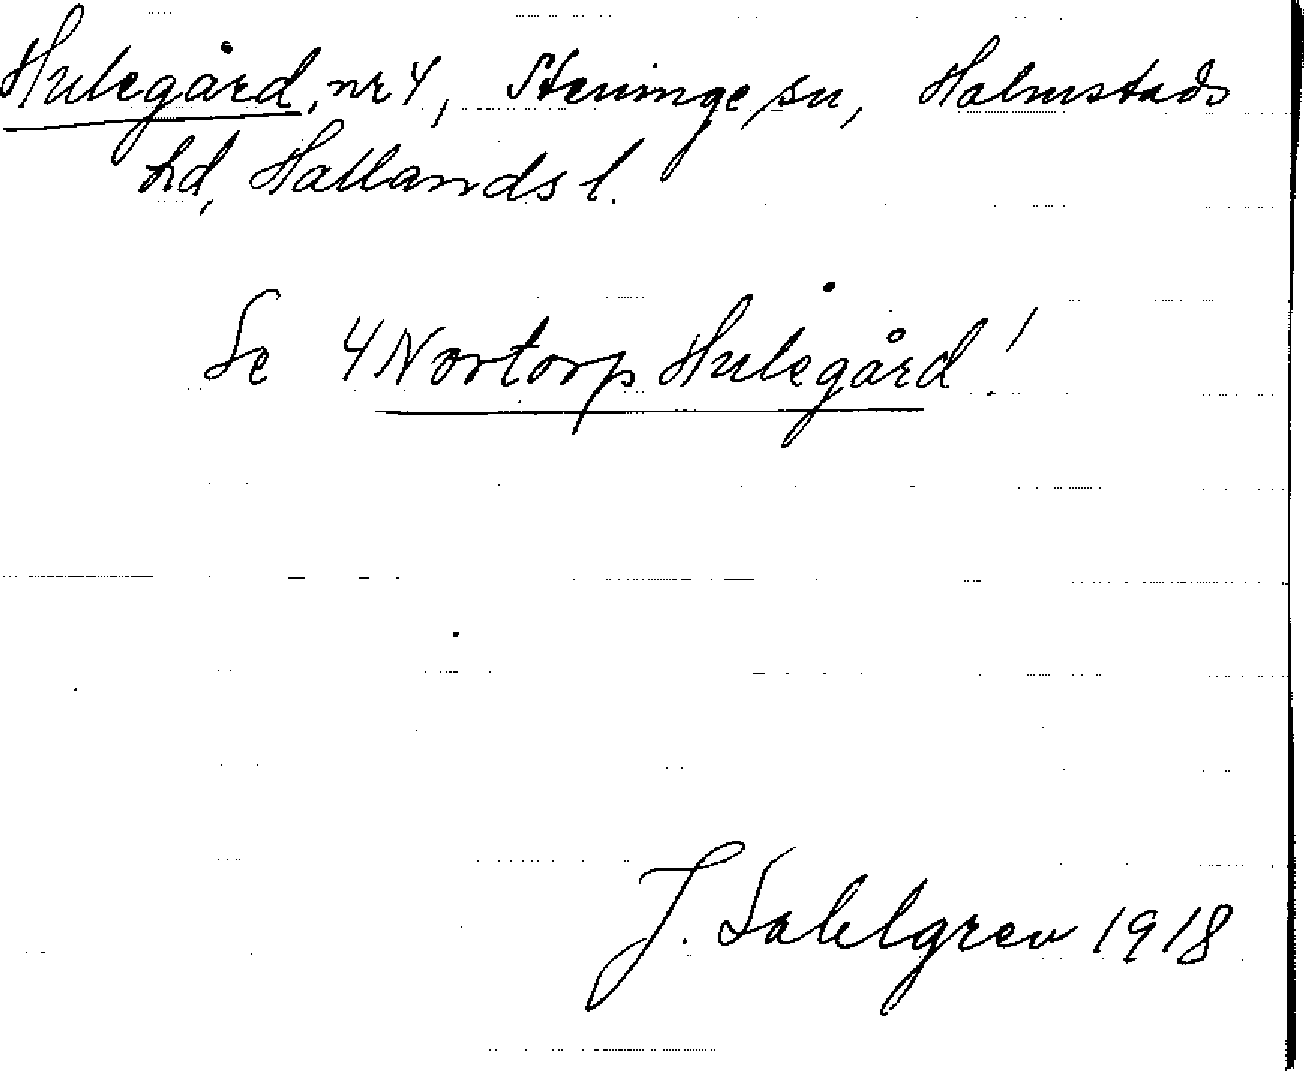 Hulegård, nr 4, Steninge sn, Halmstads
hd, Hallands l.
Se 4 Nortorp Hulegård!
J. Sahlgren 1918